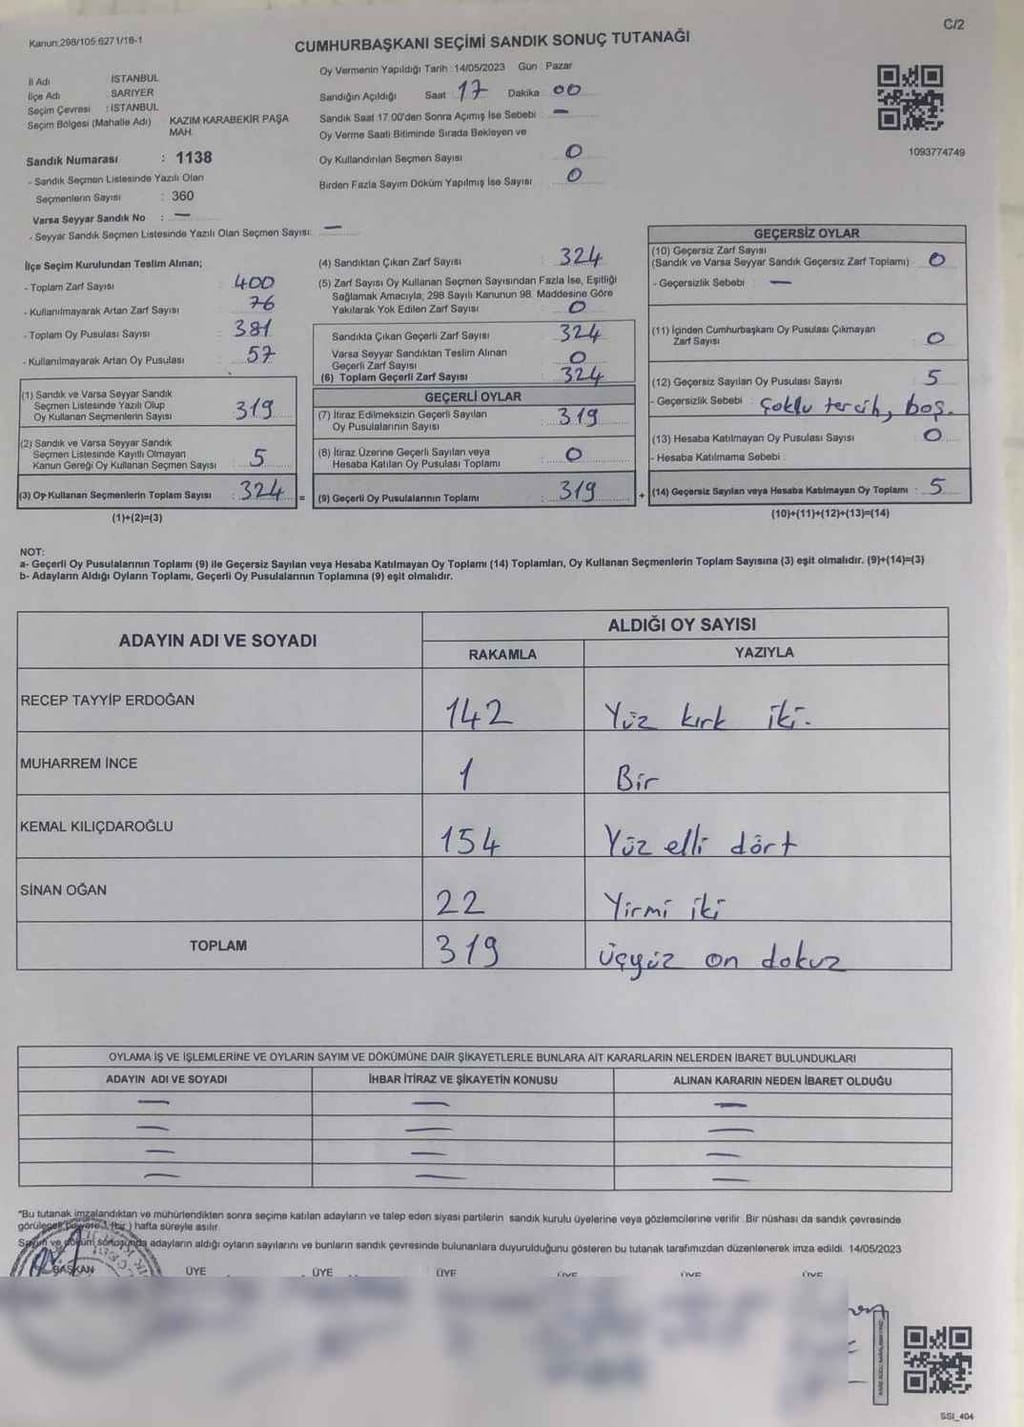 Kanun:298/105:6271/16-1
C/2
CUMHURBAŞKANI SEÇİMİ SANDIK SONUÇ TUTANAĞI
İl Adı : İSTANBUL
İlçe Adı : SARIYER
Seçim Çevresi : İSTANBUL
Seçim Bölgesi (Mahalle Adı) KAZIM KARABEKİR PAŞA MAH.
Sandık Numarası : 1138
- Sandık Seçmen Listesinde Yazılı Olan
Seçmenlerin Sayısı : 360
Varsa Seyyar Sandık No : —
- Seyyar Sandık Seçmen Listesinde Yazılı Olan Seçmen Sayısı: —
Oy Vermenin Yapıldığı Tarih : 14/05/2023 Gün : Pazar
Sandığın Açıldığı Saat 17 Dakika 00
Sandık Saat 17.00'den Sonra Açımış İse Sebebi —
Oy Verme Saati Bitiminde Sırada Bekleyen ve
Oy Kullandırılan Seçmen Sayısı 0
Birden Fazla Sayım Döküm Yapılmış İse Sayısı 0
1093774749
İlçe Seçim Kurulundan Teslim Alınan;
- Toplam Zarf Sayısı : 400
- Kullanılmayarak Artan Zarf Sayısı : 76
- Toplam Oy Pusulası Sayısı : 381
- Kullanılmayarak Artan Oy Pusulası : 57
(1) Sandık ve Varsa Seyyar Sandık
Seçmen Listesinde Yazılı Olup
Oy Kullanan Seçmenlerin Sayısı 319
(2) Sandık ve Varsa Seyyar Sandık
Seçmen Listesinde Kayıtlı Olmayan
Kanun Gereği Oy Kullanan Seçmen Sayısı 5
(3) Oy Kullanan Seçmenlerin Toplam Sayısı : 324 =
(1)+(2)=(3)
(4) Sandıktan Çıkan Zarf Sayısı : 324
(5) Zarf Sayısı Oy Kullanan Seçmen Sayısından Fazla İse, Eşitliği
Sağlamak Amacıyla; 298 Sayılı Kanunun 98. Maddesine Göre
Yakılarak Yok Edilen Zarf Sayısı 0
Sandıkta Çıkan Geçerli Zarf Sayısı : 324
Varsa Seyyar Sandıktan Teslim Alınan
Geçerli Zarf Sayısı 0
(6) Toplam Geçerli Zarf Sayısı 324
GEÇERLİ OYLAR
(7) İtiraz Edilmeksizin Geçerli Sayılan
Oy Pusulalarının Sayısı : 319
(8) İtiraz Üzerine Geçerli Sayılan veya
Hesaba Katılan Oy Pusulası Toplamı : 0
(9) Geçerli Oy Pusulalarının Toplamı : 319 +
GEÇERSİZ OYLAR
(10) Geçersiz Zarf Sayısı
(Sandık ve Varsa Seyyar Sandık Geçersiz Zarf Toplamı) : 0
- Geçersizlik Sebebi : —
(11) İçinden Cumhurbaşkanı Oy Pusulası Çıkmayan
Zarf Sayısı 0
(12) Geçersiz Sayılan Oy Pusulası Sayısı 5
- Geçersizlik Sebebi : Çoklu tercih, boş.
(13) Hesaba Katılmayan Oy Pusulası Sayısı 0
- Hesaba Katılmama Sebebi :
(14) Geçersiz Sayılan veya Hesaba Katılmayan Oy Toplamı : 5
(10)+(11)+(12)+(13)=(14)
NOT:
a- Geçerli Oy Pusulalarının Toplamı (9) ile Geçersiz Sayılan veya Hesaba Katılmayan Oy Toplamı (14) Toplamları, Oy Kullanan Seçmenlerin Toplam Sayısına (3) eşit olmalıdır. (9)+(14)=(3)
b- Adayların Aldığı Oyların Toplamı, Geçerli Oy Pusulalarının Toplamına (9) eşit olmalıdır.
ADAYIN ADI VE SOYADI
ALDIĞI OY SAYISI
RAKAMLA YAZIYLA
RECEP TAYYİP ERDOĞAN 142 Yüz kırk iki.
MUHARREM İNCE 1 Bir
KEMAL KILIÇDAROĞLU 154 Yüz elli dört
SİNAN OĞAN 22 Yirmi iki
TOPLAM 319 üçyüz on dokuz
OYLAMA İŞ VE İŞLEMLERİNE VE OYLARIN SAYIM VE DÖKÜMÜNE DAİR ŞİKAYETLERLE BUNLARA AİT KARARLARIN NELERDEN İBARET BULUNDUKLARI
ADAYIN ADI VE SOYADI İHBAR İTİRAZ VE ŞİKAYETİN KONUSU ALINAN KARARIN NEDEN İBARET OLDUĞU
— — —
— — —
— — —
— — —
"Bu tutanak imzalandıktan ve mühürlendikten sonra seçime katılan adayların ve talep eden siyasi partilerin sandık kurulu üyelerine veya gözlemcilerine verilir. Bir nüshası da sandık çevresinde
görülecek bir yere 1 (bir) hafta süreyle asılır.
Sayım ve döküm sonucunda adayların aldığı oyların sayılarını ve bunların sandık çevresinde bulunanlara duyurulduğunu gösteren bu tutanak tarafımızdan düzenlenerek imza edildi. 14/05/2023
BAŞKAN ÜYE ÜYE ÜYE ÜYE ÜYE ÜYE
SSI_404